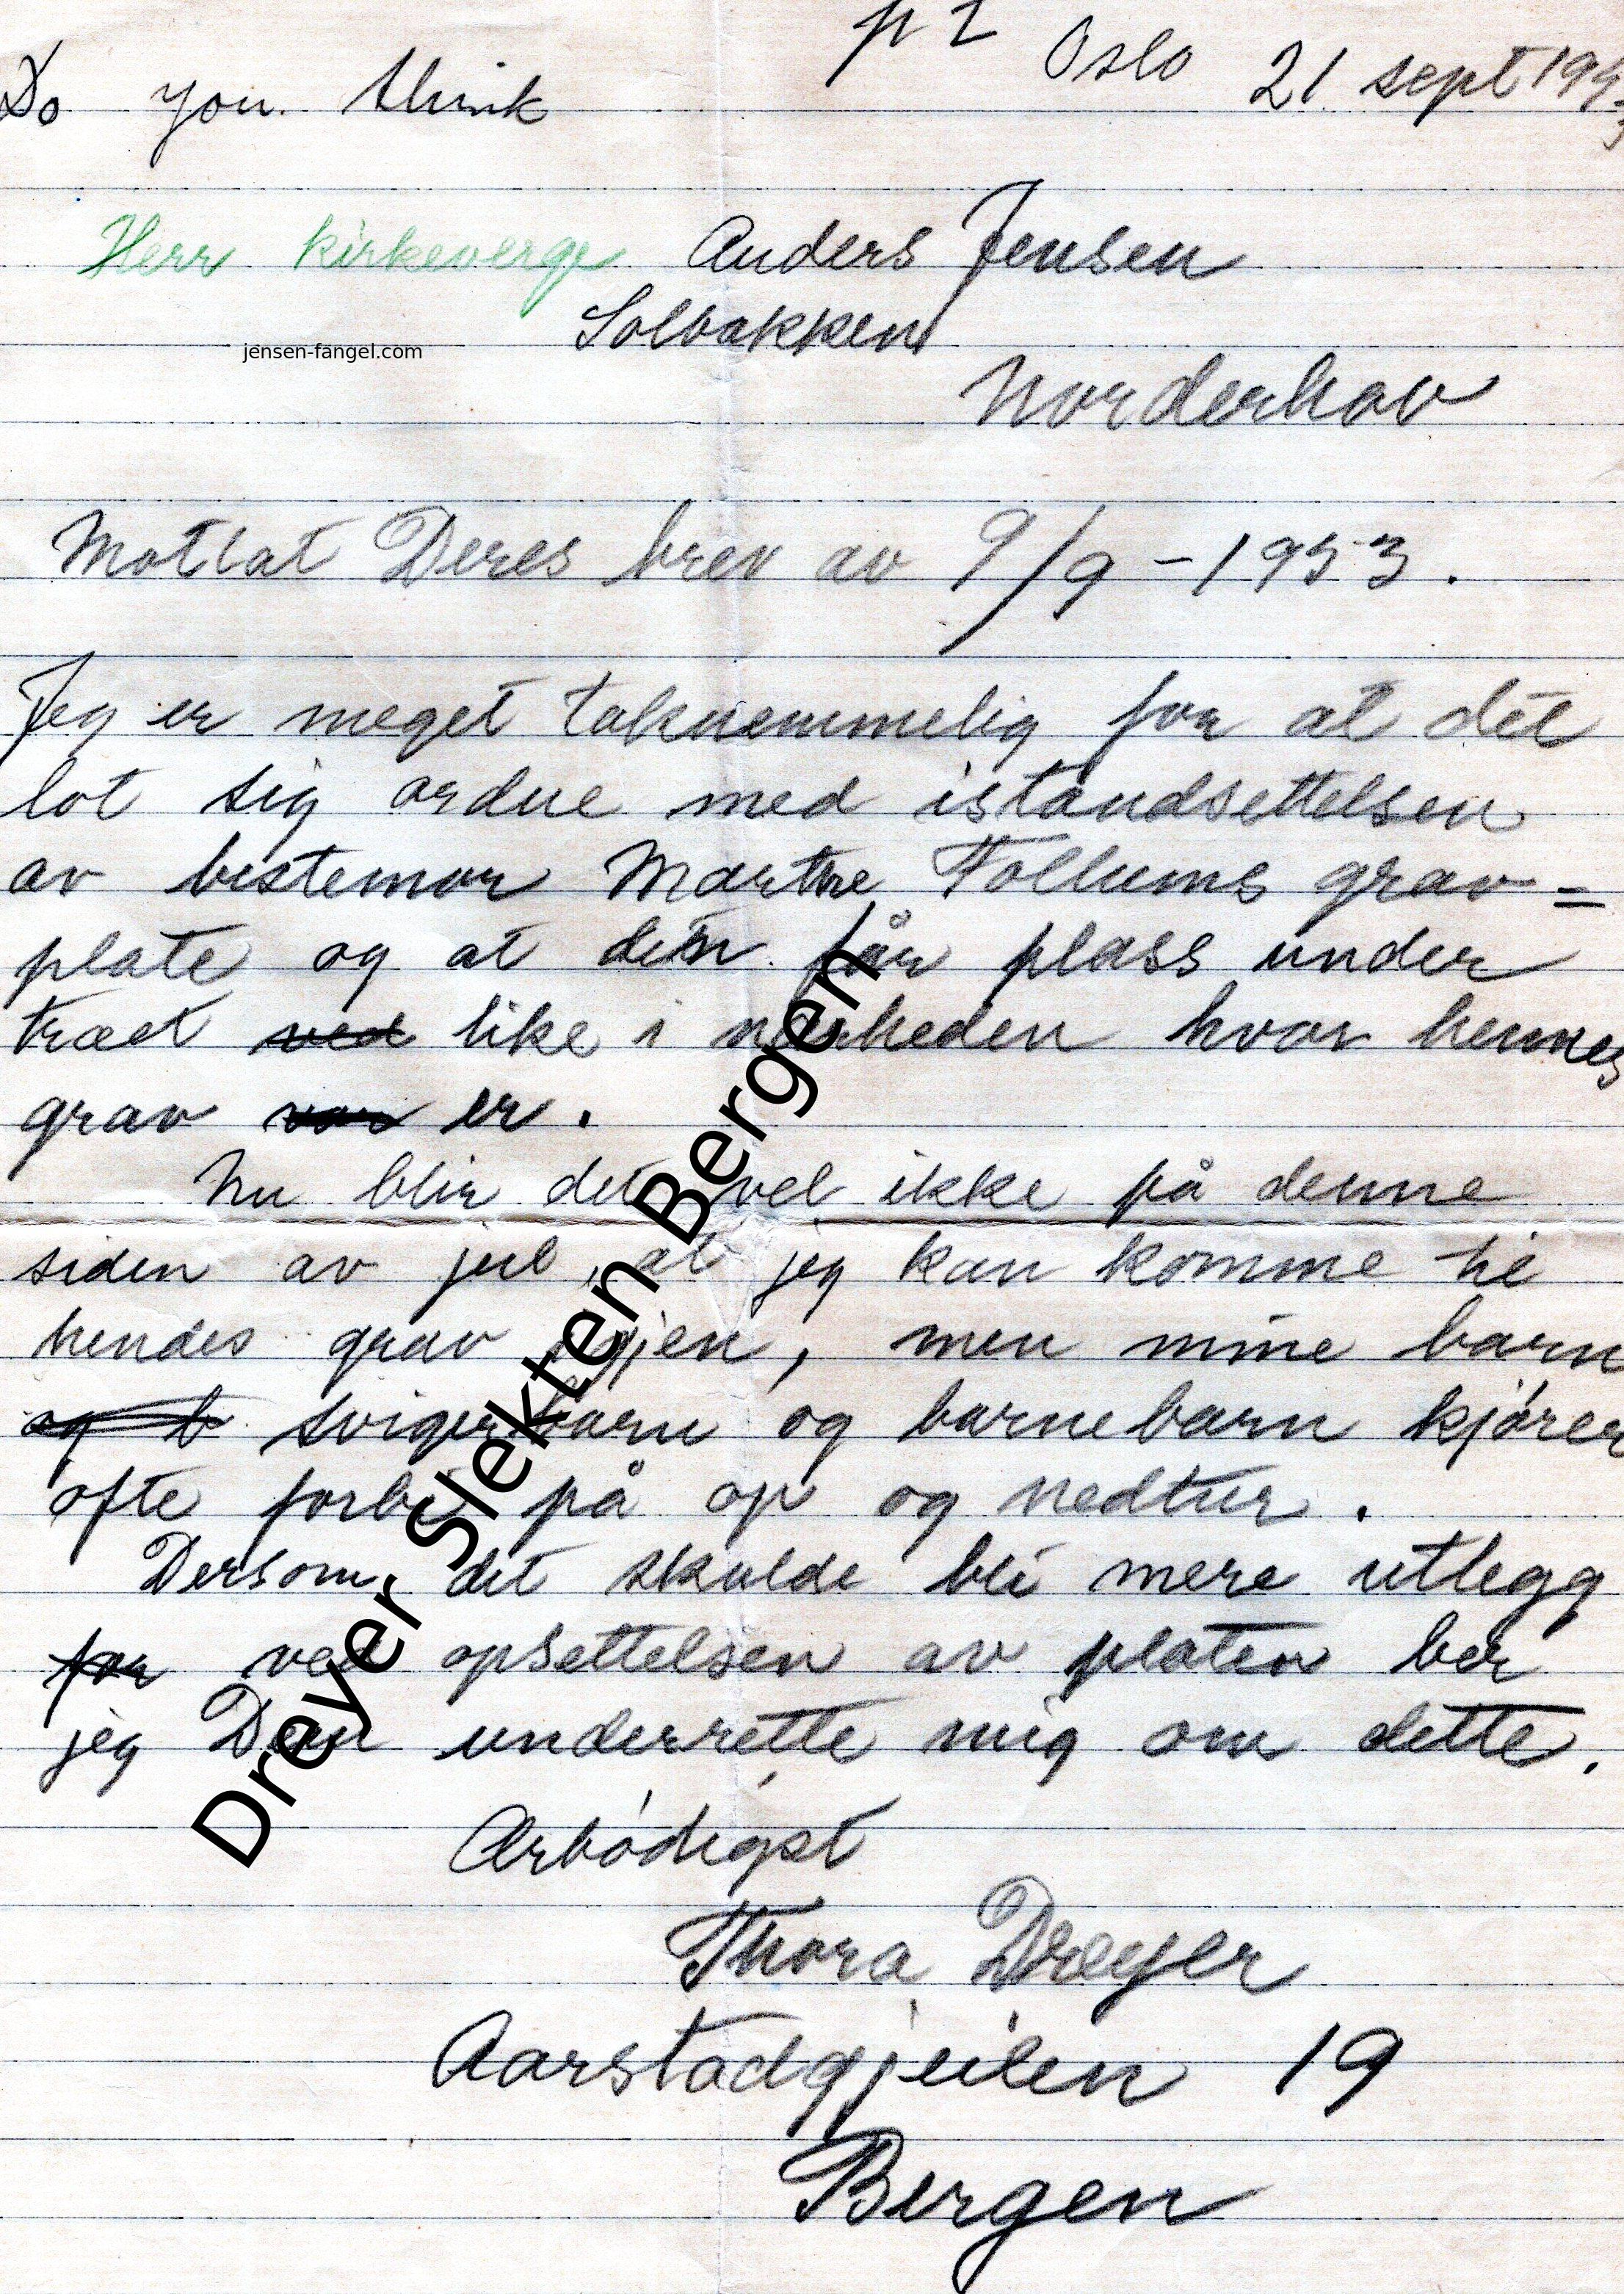 p z Oslo 21 sept 1953
Do you think
Herr kirkeverge Anders Jensen
Solbakken
jensen-fangel.com
Norderhov
Mottat Deres brev av 9/9 - 1953.
Jeg er meget taknemmelig for at det
lot sig ordne med istandsettelsen
av bestemor Marthe Follums grav=
plate og at den får plass under
træet ved like i nærheden hvor hennes
grav var er.
Nu blir det vel ikke på denne
siden av jul, at jeg kan komme til
hendes grav igjen, men mine barn
og b svigerbarn og barnebarn kjører
ofte forbi på op og nedtur.
Dersom det skulde bli mere utlegg
for ved opsettelsen av platen ber
jeg Dem underrette mig om dette.
Ærbødigst
Thora Dreyer
Aarstadgjeilen 19
Bergen
Dreyer Slekten Bergen